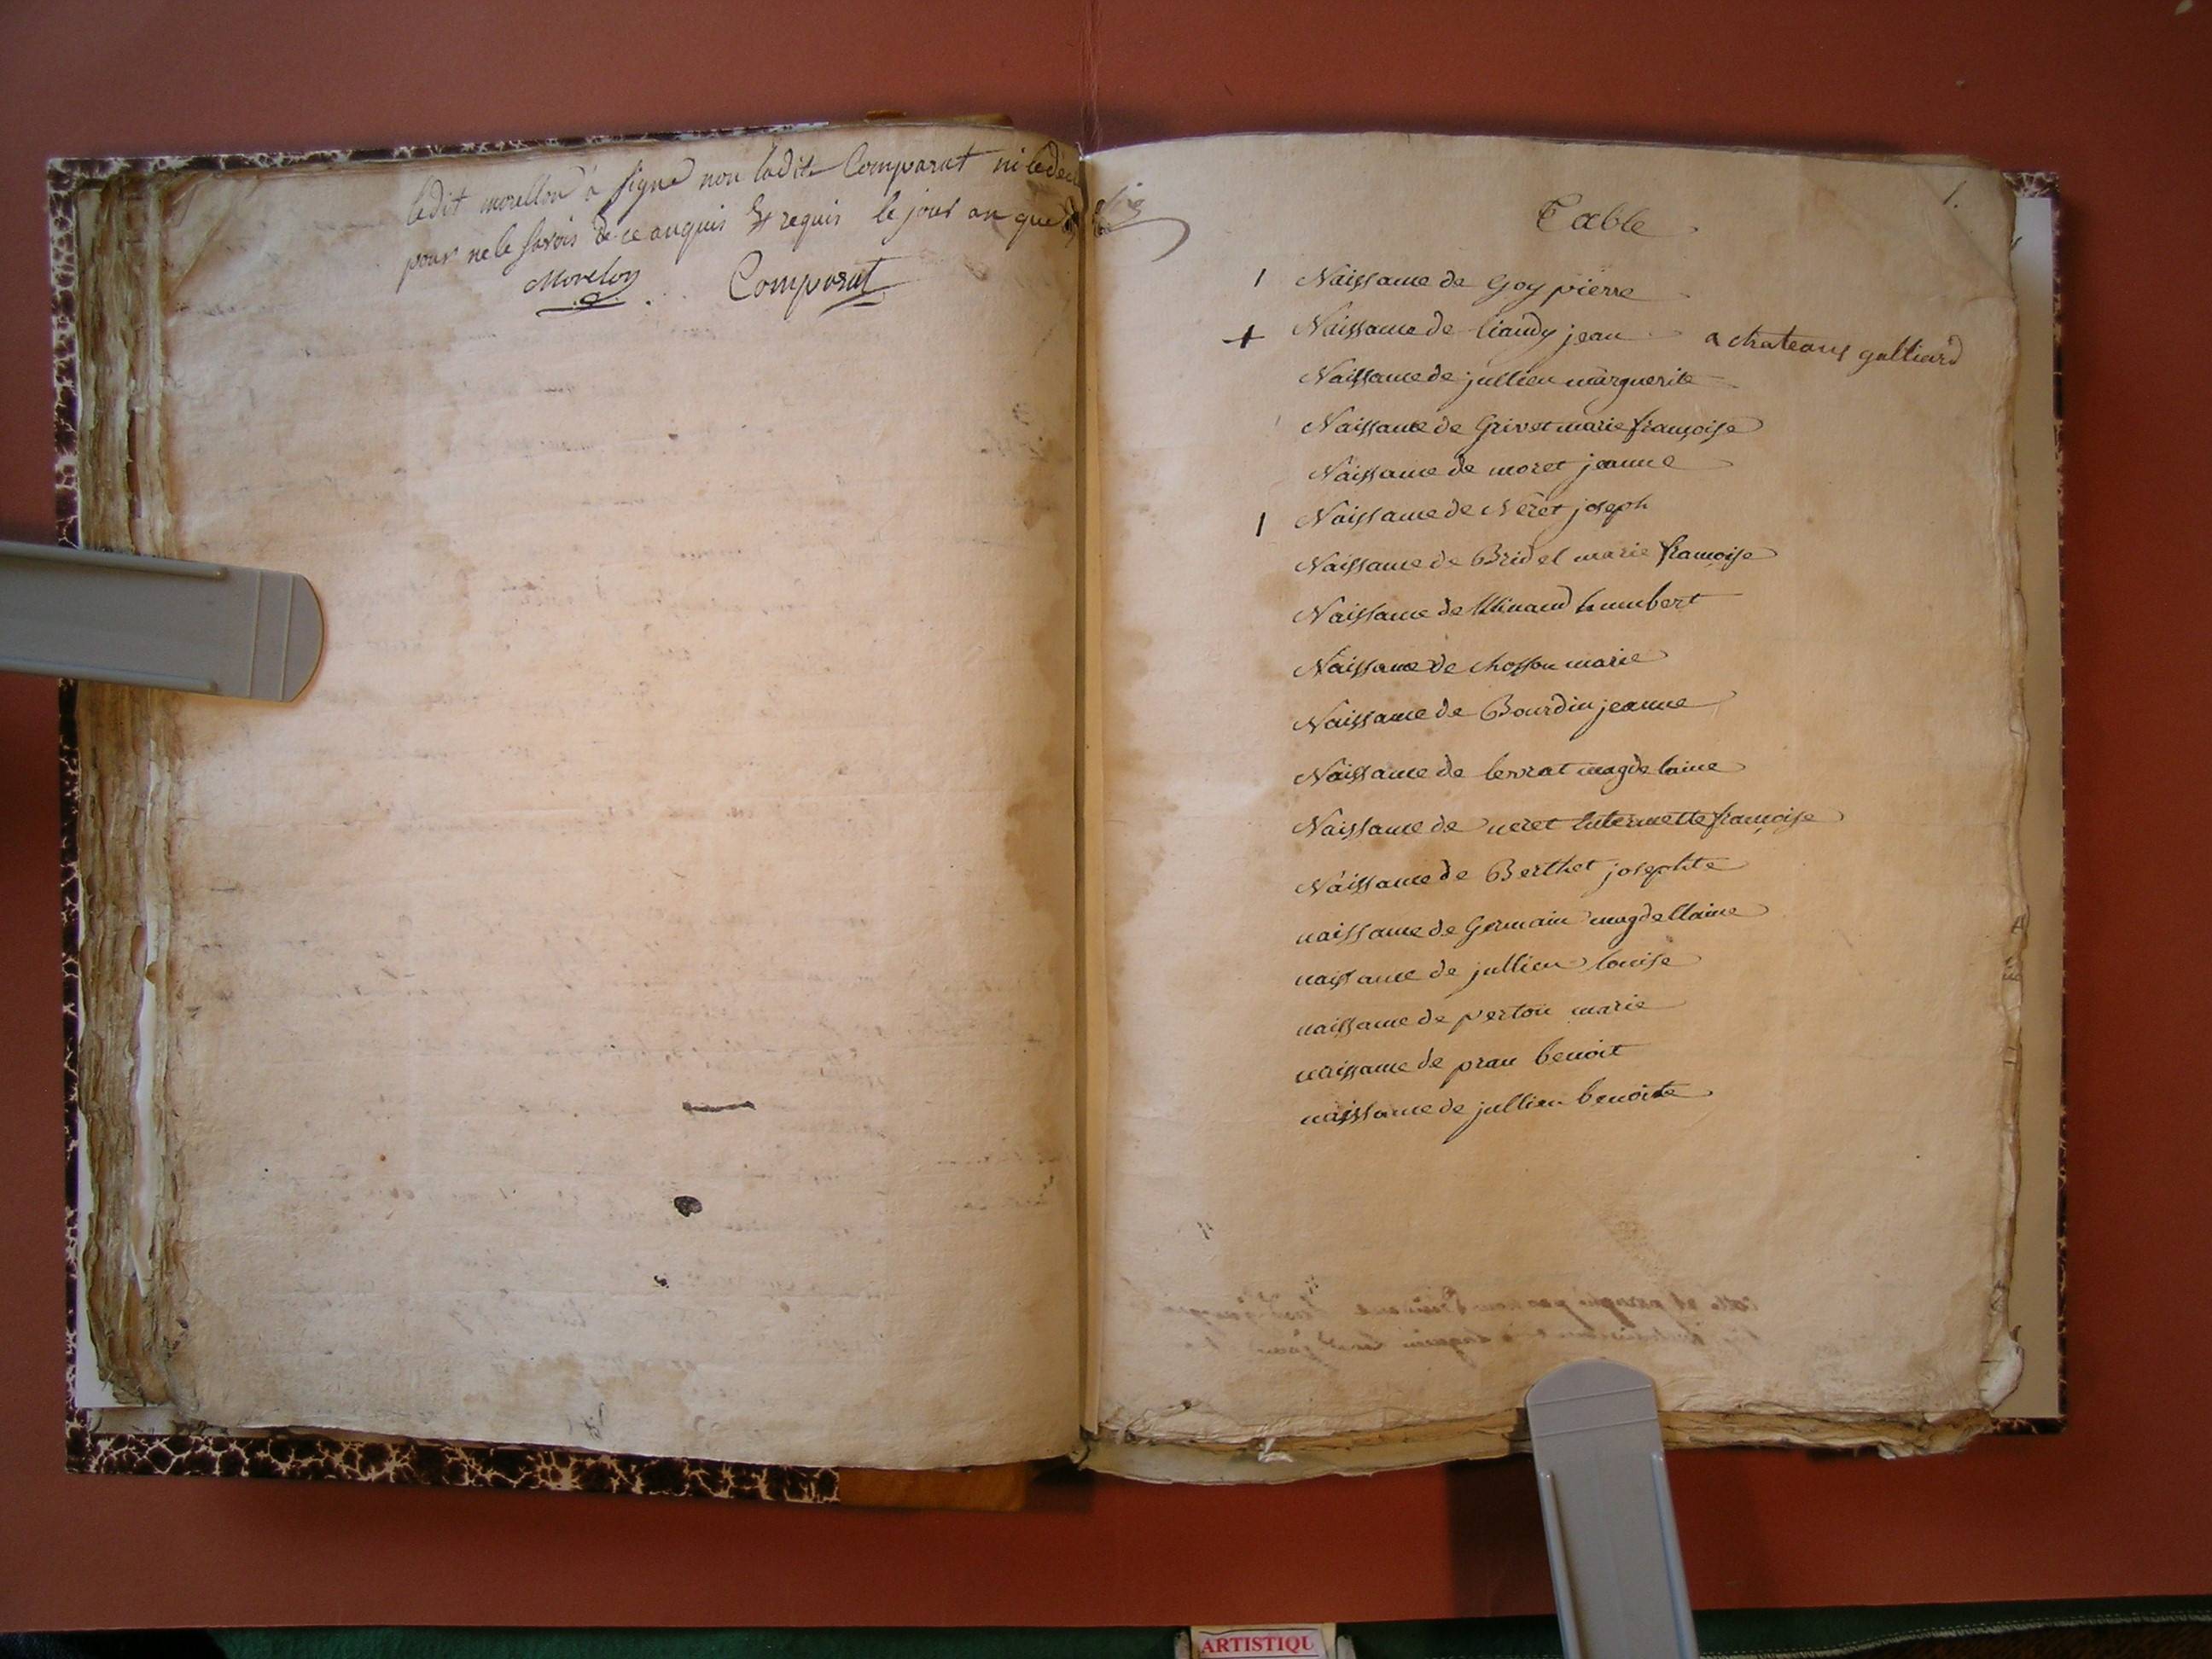 ledit morellon a signé non ladite Comparat ni ledé
pour ne le savoir de ce anquis & requis le jour an que
Morelon Comparat
1.
Table
1 Naissance de Goy pierre
+ Naissance de liaudy jean a chateaux galliard
Naissance de jullien marguerite
Naissance de Grivet marie françoise
Naissance de moret jeanne
1 Naissance de Neret joseph
Naissance de Bridel marie françoise
Naissance de humbert
Naissance de chosson marie
Naissance de Bourdin jeanne
Naissance de levrat magdelaine
Naissance de neret françoise
Naissance de Berthet josephte
naissance de Germain magdellaine
naissance de jullien louise
naissance de perton marie
naissance de prau benoit
naissance de jullien benoite
ARTISTIQU